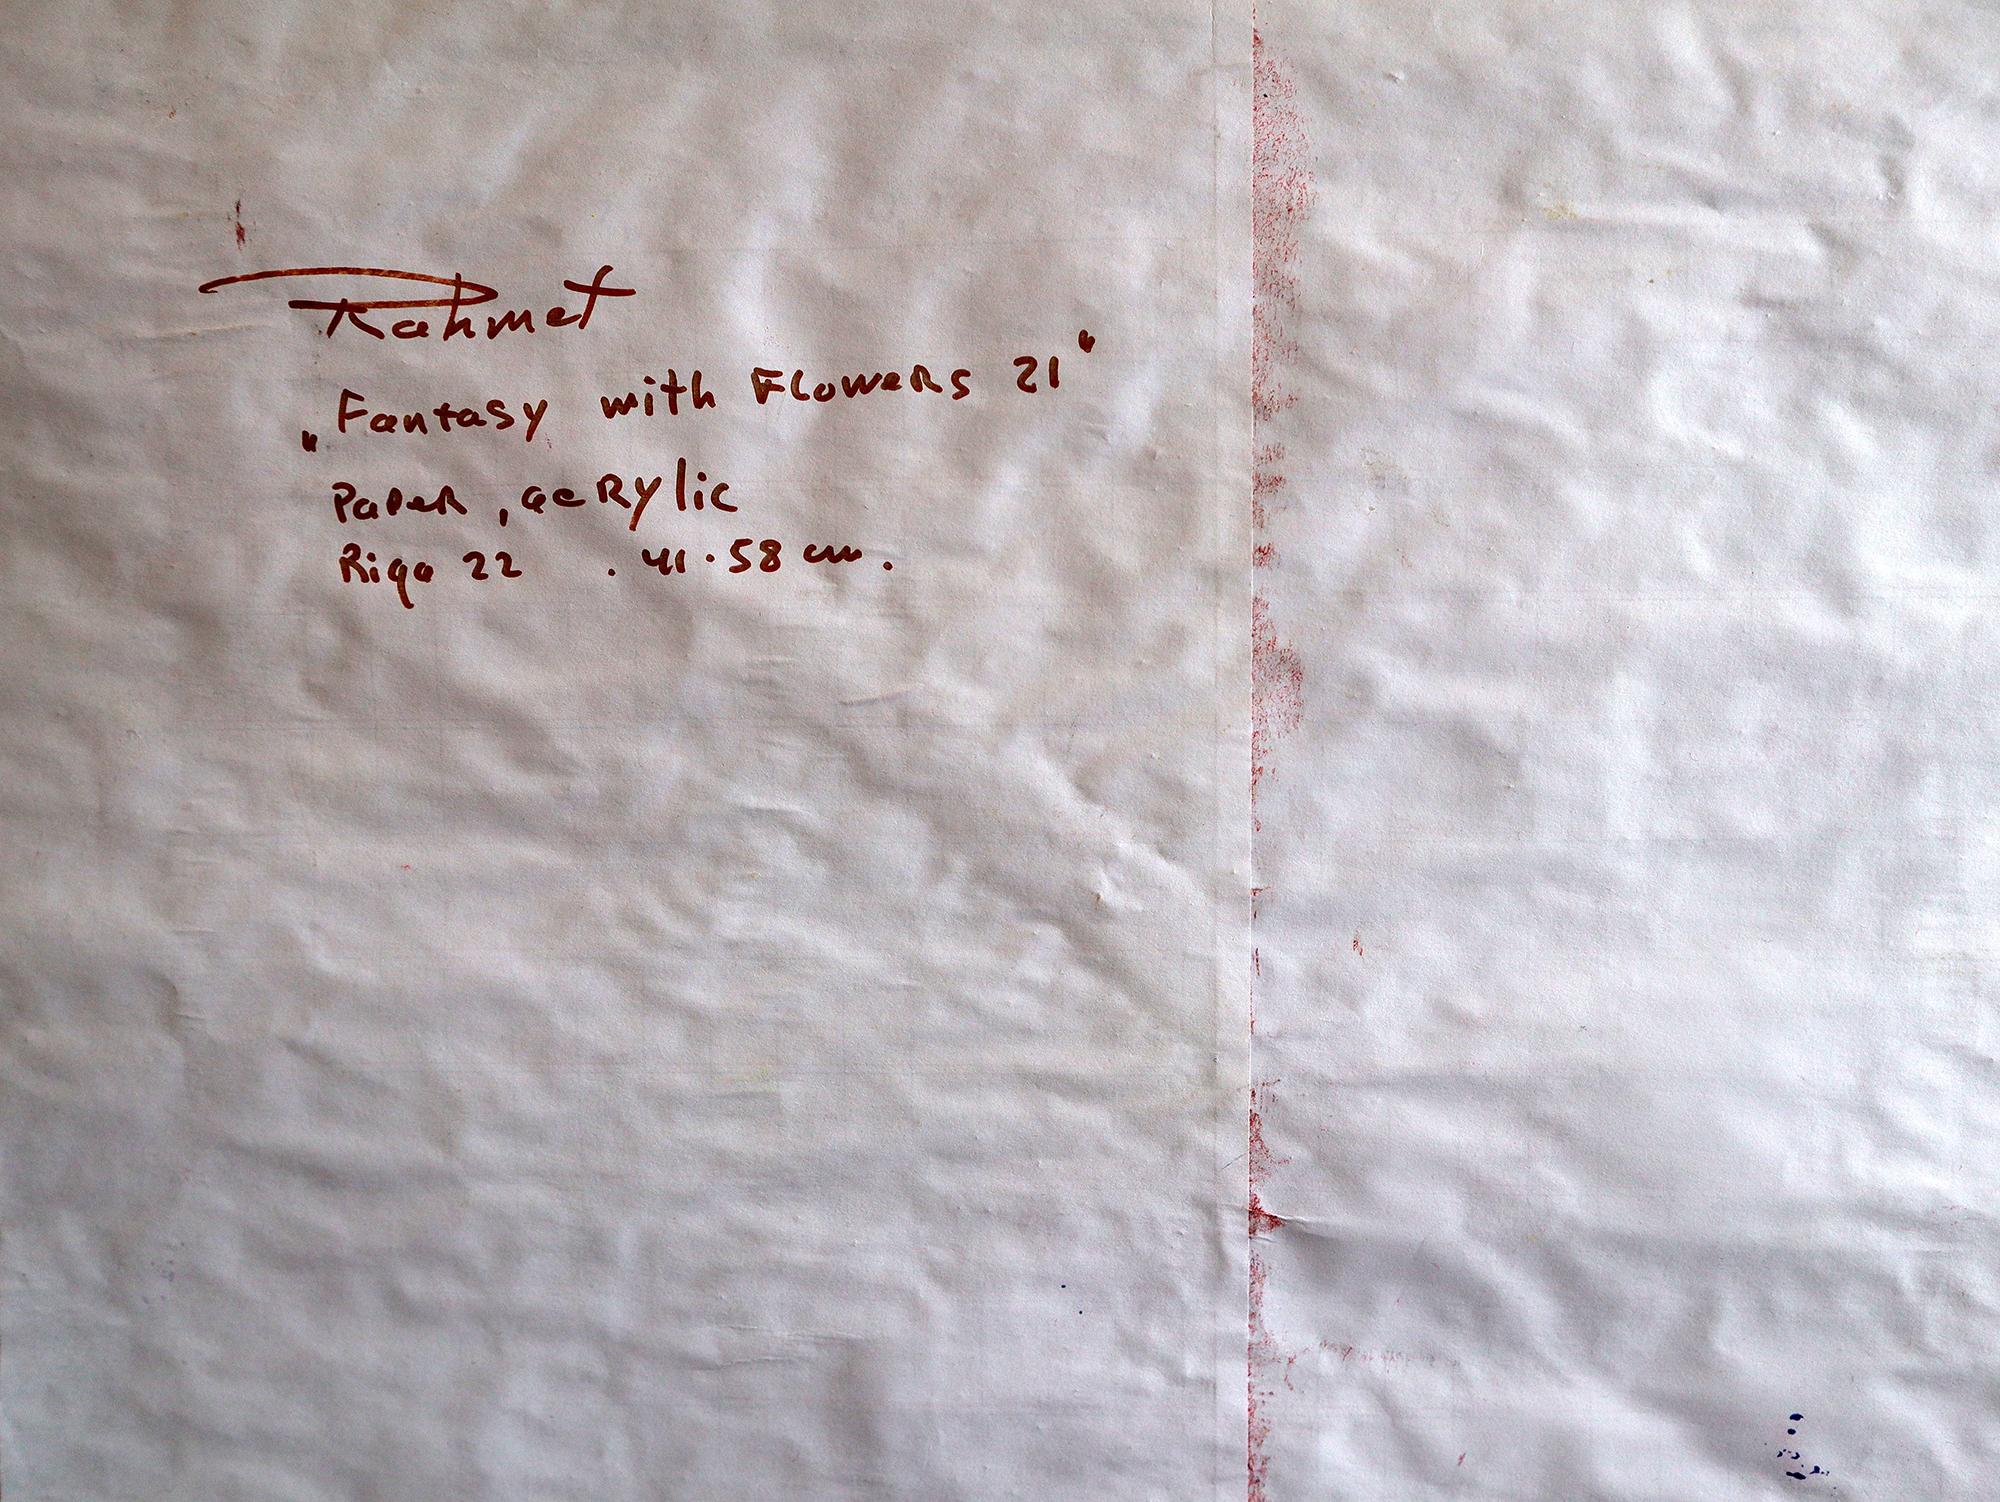 Rahmet
„Fantasy with Flowers 21"
Paper, acrylic
Riga 22 . 41.58 cm.